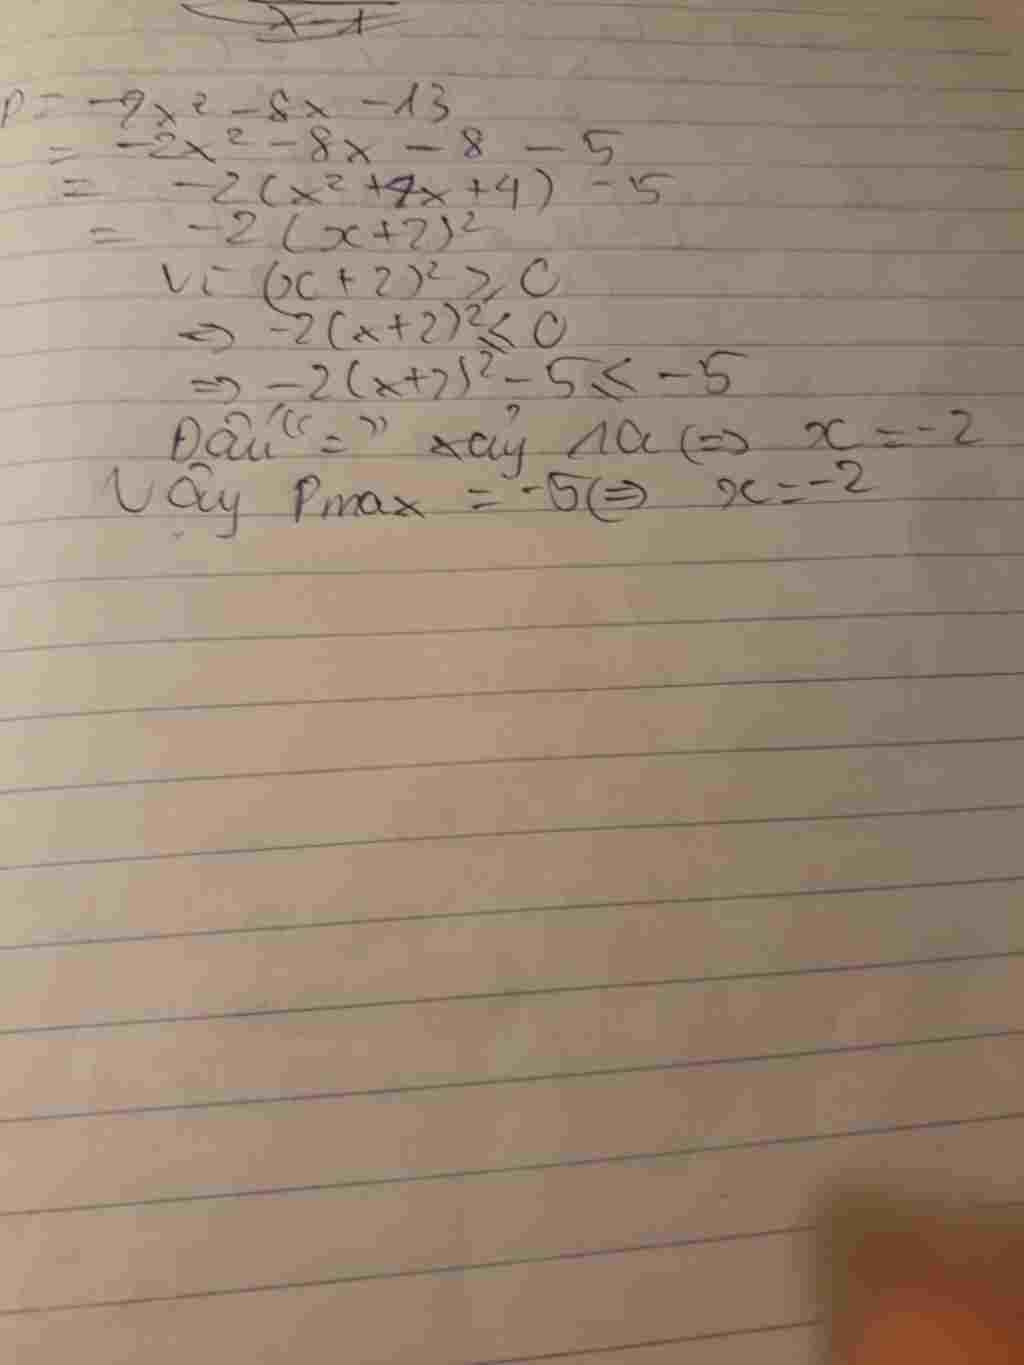 P = -2x² - 8x - 13
= -2x² - 8x - 8 - 5
= -2(x² + 4x + 4) - 5
= -2(x+2)²
Vì (x+2)² ≥ 0
=> -2(x+2)² ≤ 0
=> -2(x+2)² - 5 ≤ -5
Dấu "=" xảy ra <=> x = -2
Vậy Pmax = -5 <=> x = -2